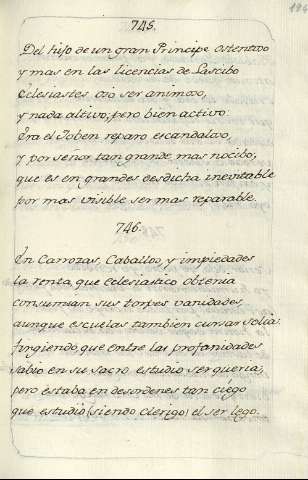 745.
Del hijo de un gran Principe ostentoso
y mas en las licencias de Lascibo
Eclesiastes vió ser animoso,
y nada altivo; pero bien activo:
Era el Joben reparo escandaloso,
y por señor tan grande mas nocibo;
que es en grandes desdicha inevitable
por mas visible ser mas reparable.
746.
En Carrozas, Caballos, y impiedades
la renta, que eclesiastico obtenia
consumian sus torpes vanidades,
aunque escuelas tambien cursar solia:
fingiendo, que entre las profanidades
sabio en su sacro estudio ser queria;
pero estaba en desordenes tan ciego
que estudió (siendo Clerigo) el ser lego.